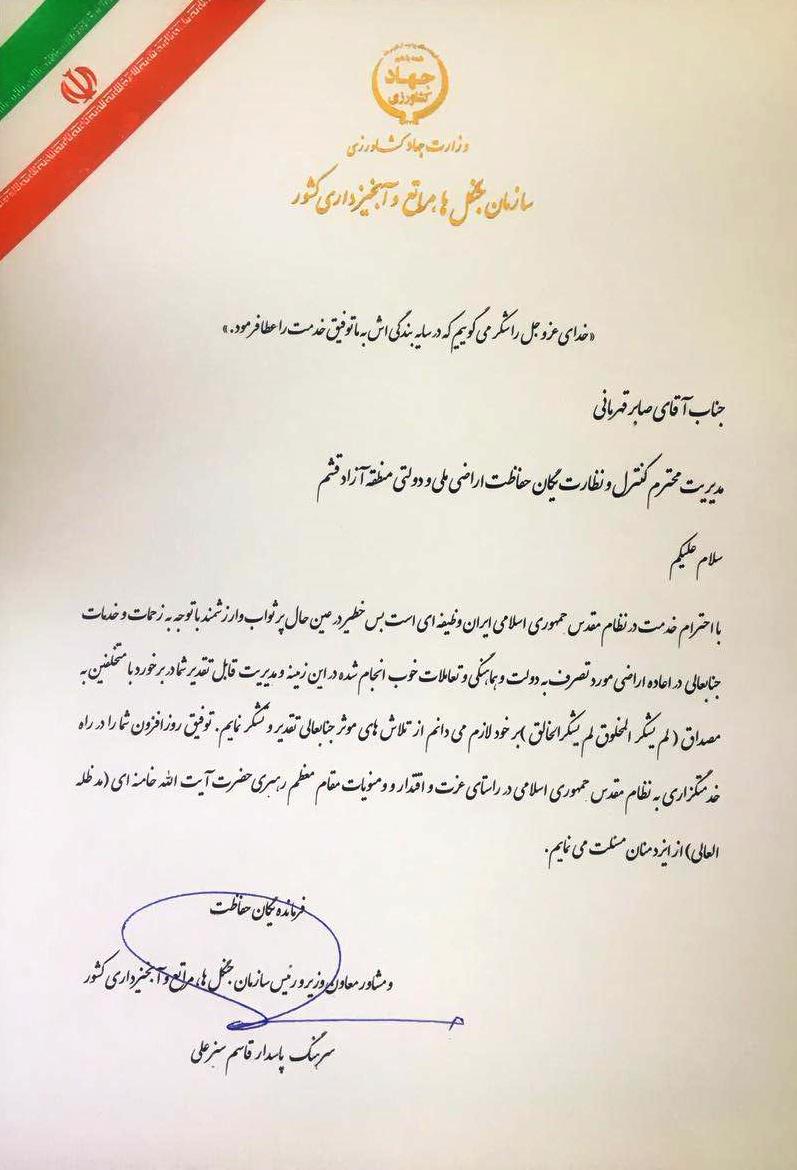 جهاد
کشاورزی
وزارت جهاد کشاورزی
سازمان جنگل ها، مراتع و آبخیزداری کشور
«خدای عزوجل را شکر می گوییم که در سایه بندگی اش به ما توفیق خدمت را عطا فرمود.»
جناب آقای صابر قهرمانی
مدیریت محترم کنترل و نظارت یگان حفاظت اراضی ملی و دولتی منطقه آزاد قشم
سلام علیکم
با احترام خدمت در نظام مقدس جمهوری اسلامی ایران وظیفه ای است بس خطیر در عین حال پر ثواب و ارزشمند با توجه به زحمات و خدمات
جنابعالی در اعاده اراضی مورد تصرف به دولت و هماهنگی و تعاملات خوب انجام شده در این زمینه و مدیریت قابل تقدیر شما در برخورد با متخلفین به
مصداق (لم یشکر المخلوق لم یشکر الخالق) بر خود لازم می دانم از تلاش های موثر جنابعالی تقدیر و تشکر نمایم. توفیق روز افزون شما را در راه
خدمتگزاری به نظام مقدس جمهوری اسلامی در راستای عزت و اقتدار و ومنویات مقام معظم رهبری حضرت آیت الله خامنه ای (مد ظله
العالی) از ایزد منان مسئلت می نمایم.
فرمانده یگان حفاظت
و مشاور معاون وزیر و رئیس سازمان جنگل ها، مراتع و آبخیزداری کشور
سرهنگ پاسدار قاسم سبزعلی